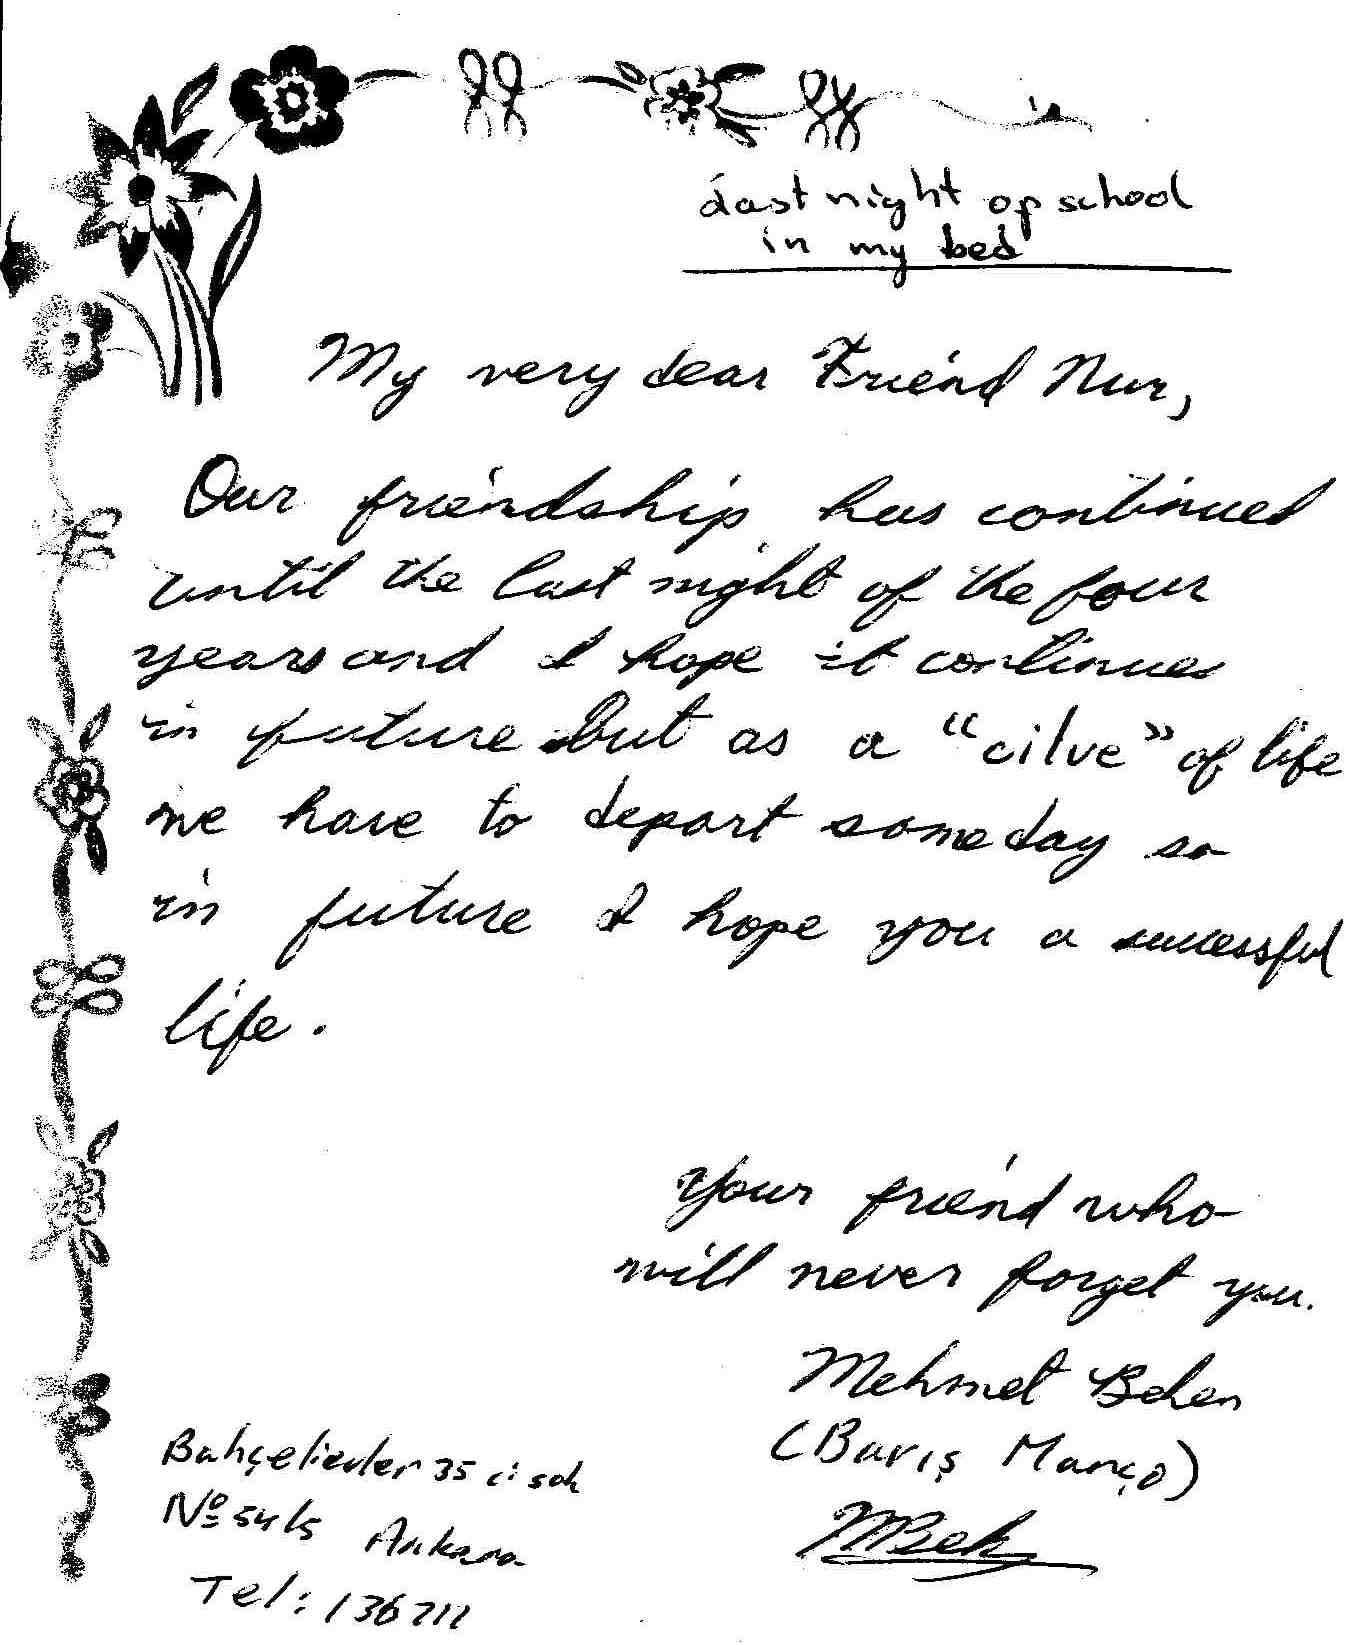 Last night of school
in my bed
My very dear Friend Nur,
Our friendship has continued
until the last night of the four
years and I hope it continues
in future but as a "cilve" of life
we have to depart someday so
in future I hope you a successful
life.
Your friend who
will never forget you.
Mehmet
(Barış Manço)
MBek
Bahçelievler 35 ci sok
No 54/5 Ankara
Tel: 136211